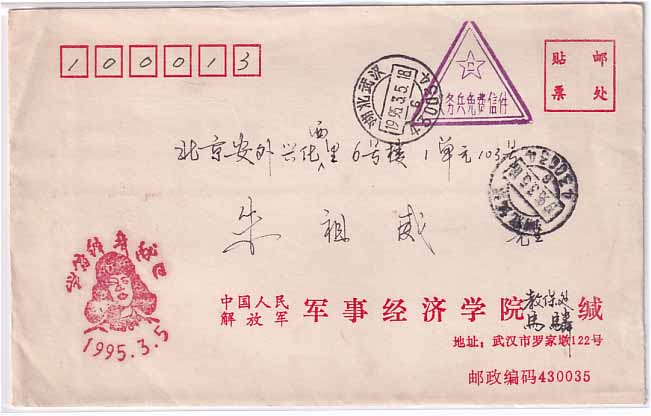 100013
湖北武汉
1995.3.5.18
430034
义务兵免费信件
贴 邮
票 处
北京安外兴化西里6号楼1单元103号
朱祖威 先生
430034
1995.3.5
1995.3.5
中国人民
解放军
军事经济学院 缄
教保处
马骥
地址:武汉市罗家墩122号
邮政编码430035